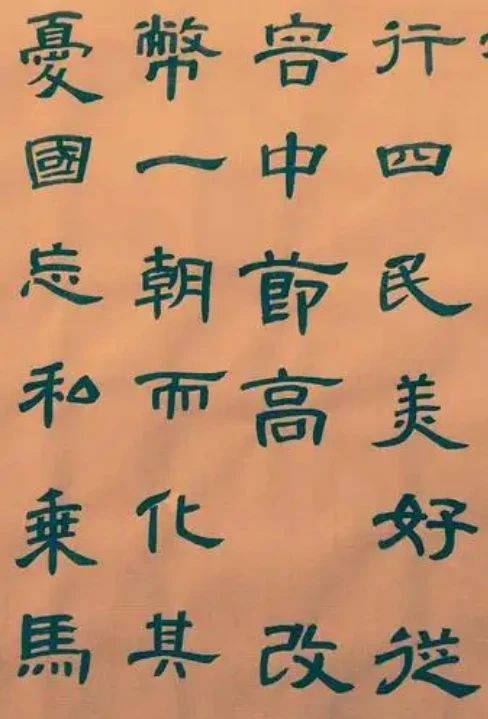 行四民美好從
容中節高 改
幣一朝而化其
憂國忘和乘馬